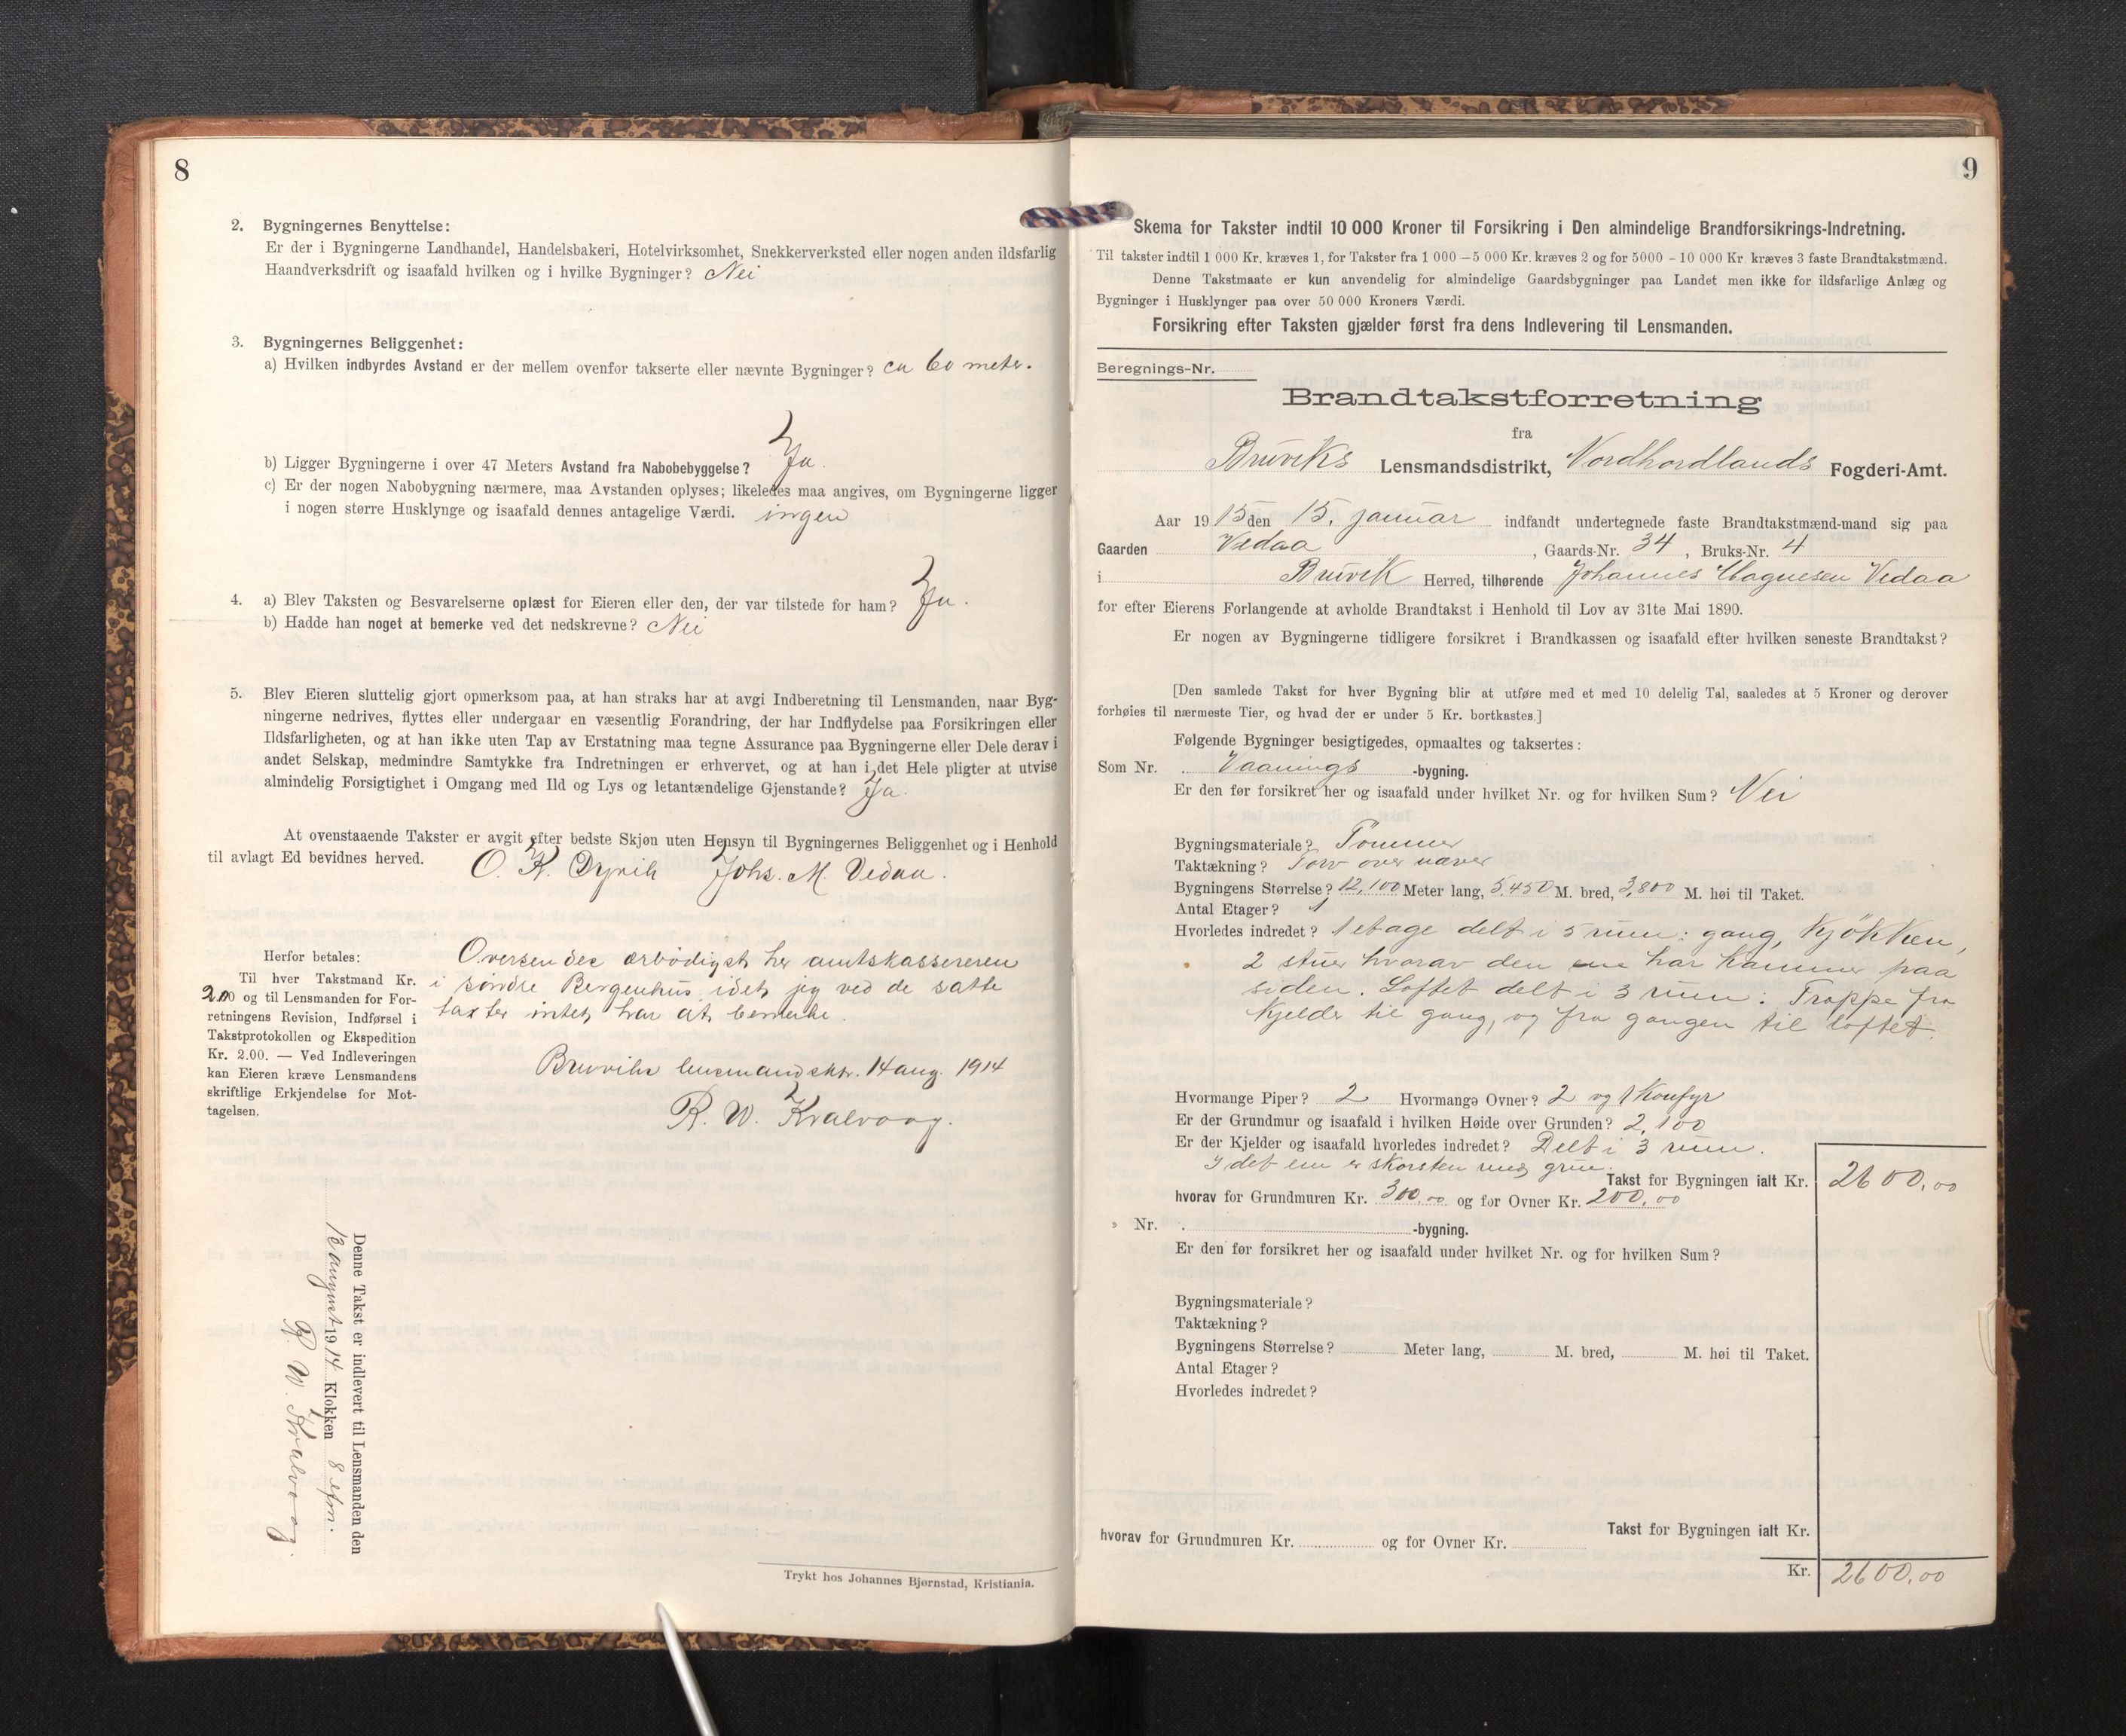 8
2. Bygningernes Benyttelse:
Er der i Bygningerne Landhandel, Handelsbakeri, Hotelvirksomhet, Snekkerverksted eller nogen anden ildsfarlig
Haandverksdrift og isaafald hvilken og i hvilke Bygninger? Nei
3. Bygningernes Beliggenhet:
a) Hvilken indbyrdes Avstand er der mellem ovenfor takserte eller nævnte Bygninger? ca 60 meter.
b) Ligger Bygningerne i over 47 Meters Avstand fra Nabobebyggelse? Ja.
c) Er der nogen Nabobygning nærmere, maa Avstanden oplyses; likeledes maa angives, om Bygningerne ligger
i nogen større Husklynge og isaafald dennes antagelige Værdi. ingen
4. a) Blev Taksten og Besvarelserne oplæst for Eieren eller den, der var tilstede for ham? Ja.
b) Hadde han noget at bemerke ved det nedskrevne? Nei
5. Blev Eieren sluttelig gjort opmerksom paa, at han straks har at avgi Indberetning til Lensmanden, naar Byg-
ningerne nedrives, flyttes eller undergaar en væsentlig Forandring, der har Indflydelse paa Forsikringen eller
Ildsfarligheten, og at han ikke uten Tap av Erstatning maa tegne Assurance paa Bygningerne eller Dele derav i
andet Selskap, medmindre Samtykke fra Indretningen er erhvervet, og at han i det Hele pligter at utvise
almindelig Forsigtighet i Omgang med Ild og Lys og letantændelige Gjenstande? Ja.
At ovenstaaende Takster er avgit efter bedste Skjøn uten Hensyn til Bygningernes Beliggenhet og i Henhold
til avlagt Ed bevidnes herved. O. K. Dyvik Johs. M. Vedaa.
Herfor betales:
Til hver Takstmand Kr.
2.00 og til Lensmanden for For-
retningens Revision, Indførsel i
Takstprotokollen og Ekspedition
Kr. 2.00. — Ved Indleveringen
kan Eieren kræve Lensmandens
skriftlige Erkjendelse for Mot-
tagelsen.
Oversendes ærbødigst hr amtskassereren
i søndre Bergenhus, idet jeg ved de satte
taxter intet har at bemerke.
Bruviks lensmandsktr. 14 aug. 1914
R. W. Kvalvaag.
Denne Takst er indlevert til Lensmanden den
13 august 1914 Klokken 8 efm.
R. W. Kvalvaag.
Trykt hos Johannes Bjørnstad, Kristiania.
9
Skema for Takster indtil 10 000 Kroner til Forsikring i Den almindelige Brandforsikrings-Indretning.
Til takster indtil 1 000 Kr. kræves 1, for Takster fra 1 000 — 5 000 Kr. kræves 2 og for 5000 - 10 000 Kr. kræves 3 faste Brandtakstmænd.
Denne Takstmaate er kun anvendelig for almindelige Gaardsbygninger paa Landet men ikke for ildsfarlige Anlæg og
Bygninger i Husklynger paa over 50 000 Kroners Værdi.
Forsikring efter Taksten gjælder først fra dens Indlevering til Lensmanden.
Beregnings-Nr.
Brandtakstforretning
fra
Bruviks Lensmandsdistrikt, Nordhordlands Fogderi-Amt.
Aar 1915 den 15. januar indfandt undertegnede faste Brandtakstmænd-mand sig paa
Gaarden Vedaa, Gaards-Nr. 34, Bruks-Nr. 4
i Bruvik Herred, tilhørende Johannes Magnesen Vedaa
for efter Eierens Forlangende at avholde Brandtakst i Henhold til Lov av 31te Mai 1890.
Er nogen av Bygningerne tidligere forsikret i Brandkassen og isaafald efter hvilken seneste Brandtakst?
[Den samlede Takst for hver Bygning blir at utføre med et med 10 delelig Tal, saaledes at 5 Kroner og derover
forhøies til nærmeste Tier, og hvad der er under 5 Kr. bortkastes.]
Følgende Bygninger besigtigedes, opmaaltes og taksertes:
Som Nr. Vaanings-bygning.
Er den før forsikret her og isaafald under hvilket Nr. og for hvilken Sum? Nei
Bygningsmateriale? Tømmer
Taktækning? Torv over næver
Bygningens Størrelse? 12,100 Meter lang, 5,450 M. bred, 3,800 M. høi til Taket.
Antal Etager? 1
Hvorledes indredet? 1 etage delt i 5 rum: gang, Kjøkken,
2 stuer hvorav den ene har kammer paa
siden. Loftet delt i 3 rum: Trappe fra
Kjelder til gang, og fra gangen til loftet.
Hvormange Piper? 2 Hvormange Ovner? 2 og 1 Komfyr
Er der Grundmur og isaafald i hvilken Høide over Grunden? 2,100
Er der Kjelder og isaafald hvorledes indredet? Delt i 3 rum.
I det ene er skorsten med grue.
Takst for Bygningen ialt Kr. 2600,00
hvorav for Grundmuren Kr. 300,00 og for Ovner Kr. 200,00
» Nr. -bygning.
Er den før forsikret her og isaafald under hvilket Nr. og for hvilken Sum?
Bygningsmateriale?
Taktækning?
Bygningens Størrelse? Meter lang, M. bred, M. høi til Taket.
Antal Etager?
Hvorledes indredet?
Takst for Bygningen ialt Kr.
hvorav for Grundmuren Kr. og for Ovner Kr.
Kr. 2600,00